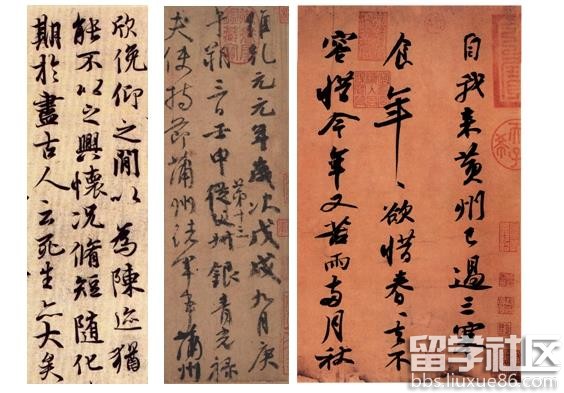 欣俛仰之閒以為陳迹猶
能不以之興懷況脩短隨化
期於盡古人云死生亦大矣
維乾元元年歲次戊戌九月庚
午朔三日壬申從父叔銀青光祿
第十三
夫使持節蒲州諸軍事蒲州
自我来黃州已過三寒
食年〻欲惜春〻去不
容惜今年又苦雨兩月秋
留学社区
bbs.liuxue86.com